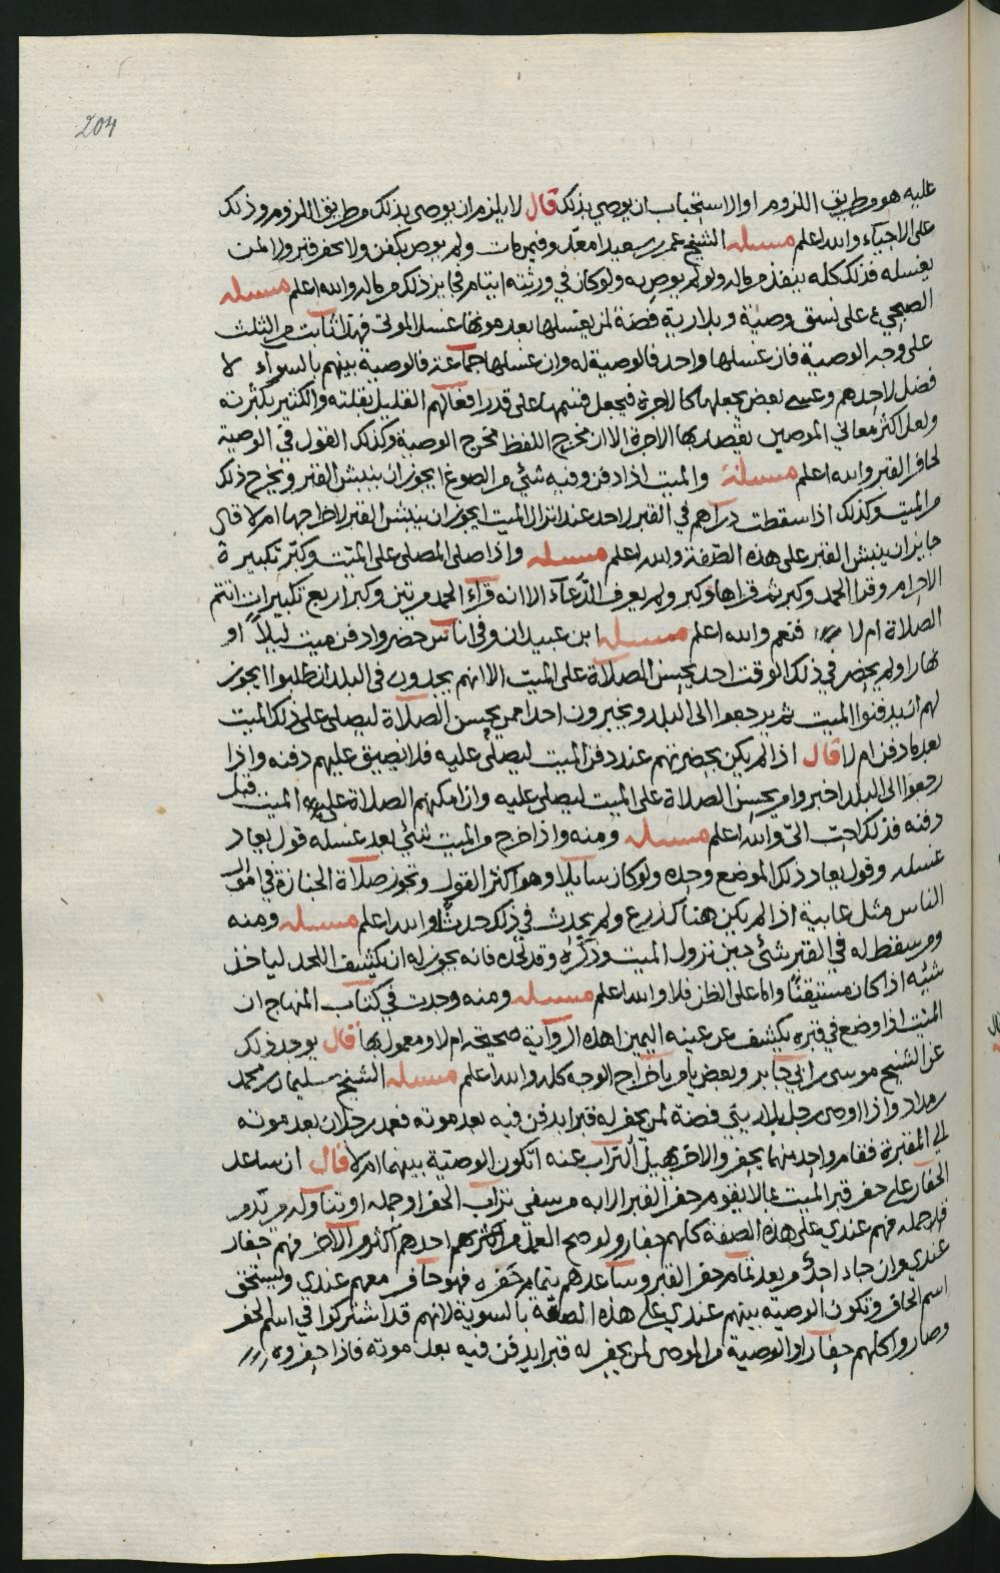 204
عليه هو من طريق اللزوم او الاستحباب ان يوصي بذلك قال لا يلزم ان يوصي بذلك من طريق اللزوم وذلك
على الاحياء والله اعلم مسئله الشيخ عمر بن سعيد امعد وفيمن مات ولم يوص بكفن ولا بحفر قبر ولا لمن
يغسله فذلك كله ينفذ من ماله ولو لم يوص به ولو كان في ورثته ايتام في ذلك من ماله والله اعلم مسئله
الصبحي على نسق وصية وبلارية فضة لمن يغسلها بعد موتها غسل الموتى فهذا ثابت من الثلث
على وجه الوصية فان غسلها واحد فالوصية له وان غسلها جماعة فالوصية بينهم بالسواء لا
فضل لاحدهم وعسى بعض يجعلها كالاجرة فيجعل قسمها على قدر افعالهم القليل بقلته والكثير بكثرته
ولعل اكثر معاني الموصين يقصد بها الاجرة الا ان مخرج اللفظ مخرج الوصية وكذلك القول في الوصية
لحافر القبر والله اعلم مسئلة والميت اذا دفن وفيه شئ من الصوغ ايجوز ان ينبش القبر ويخرج ذلك
من الميت وكذلك اذا سقطت دراهم في القبر لاحد عند انزال الميت ايجوز ان ينبش القبر لاخراجها ام لا قال
جايز ان ينبش القبر على هذه الصفة والله اعلم مسئله واذا صلى المصلي على الميت وكبر تكبيرة
الاحرام وقرا الحمد وكبر ثم قراها وكبر ولم يعرف الدعآء الا انه قرآء الحمد مرتين وكبر اربع تكبيرات اتتم
الصلاة ام لا فنعم والله اعلم مسئله ابن عبيدان وفي اناس حضروا دفن ميت ليلاً او
نهارا ولم يحضر في ذلك الوقت احد يحسن الصلاة على الميت الا انهم يجدون في البلد ان طلبوا ايجوز
لهم ان يدفنوا الميت ثم يرجعوا الى البلد ويخبرون احدا ممن يحسن الصلاة ليصلي على ذلك الميت
بعد ما دفن ام لا قال اذا لم يكن بحضرتهم عند دفن الميت ليصلي عليه فلا يضيق عليهم دفنه واذا
رجعوا الى البلد اخبروا من يحسن الصلاة على الميت ليصلي عليه وان امكنهم الصلاة على الميت قبل
دفنه فذلك احب اليّ والله اعلم مسئله ومنه واذا خرج من الميت شئ بعد غسله قول يعاد
غسله وقول يعاد ذلك الموضع وحده ولو كان سايلا وهو اكثر القول وتجوز صلاة الجنازة في اموال
الناس مثل عابية اذا لم يكن هناك زرع ولم يحدث في ذلك حدثا والله اعلم مسئله ومنه
ومن سقط له في القبر شئ حين نزول الميت وذكره وقد لحده فانه يجوز له ان يكشف اللحد لياخذ
شيئه اذا كان مستيقناً واما على الظن فلا والله اعلم مسئله ومنه وجدت في كتاب المنهاج ان
الميت اذا وضع في قبره يكشف عن عينه اليمين اهذه الرواية صحيحة ام لا ومعمول بها قال يوجد ذلك
عن الشيخ موسى بن ابي جابر وبعض يامر باخراج الوجه كله والله اعلم مسئله الشيخ سليمان بن محمد
بن مداد واذا اوصى رجل بلاريتي فضة لمن يحفر له قبرا يدفن فيه بعد موته فعمد رجلان بعد موته
الى المقبرة فقام واحد منهما يحفر والاخر يهيل التراب عنه اتكون الوصية بينهما ام لا قال ان ساعد
الحفار على حفر قبر الميت بما لا يقوم حفر القبر الا به من سفي تراب الحفر او حمله او تناوله من قدم
فهم عندي على هذه الصفة كلهم حفار ولو صح العمل من احدهم اكثر من الاخر فهم حفار
عندي وان جاء احد من بعد تمام حفر القبر وساعدهم بتمام حفره فهو حافر معهم عندي ويستحق
اسم الحافر وتكون الوصية بينهم عندي على هذه الصفة بالسوية لانهم قد اشتركوا في اسم الحفر
وصاروا كلهم حفارا والوصية من الموصي لمن يحفر له قبرا يدفن فيه بعد موته فاذا حفروه